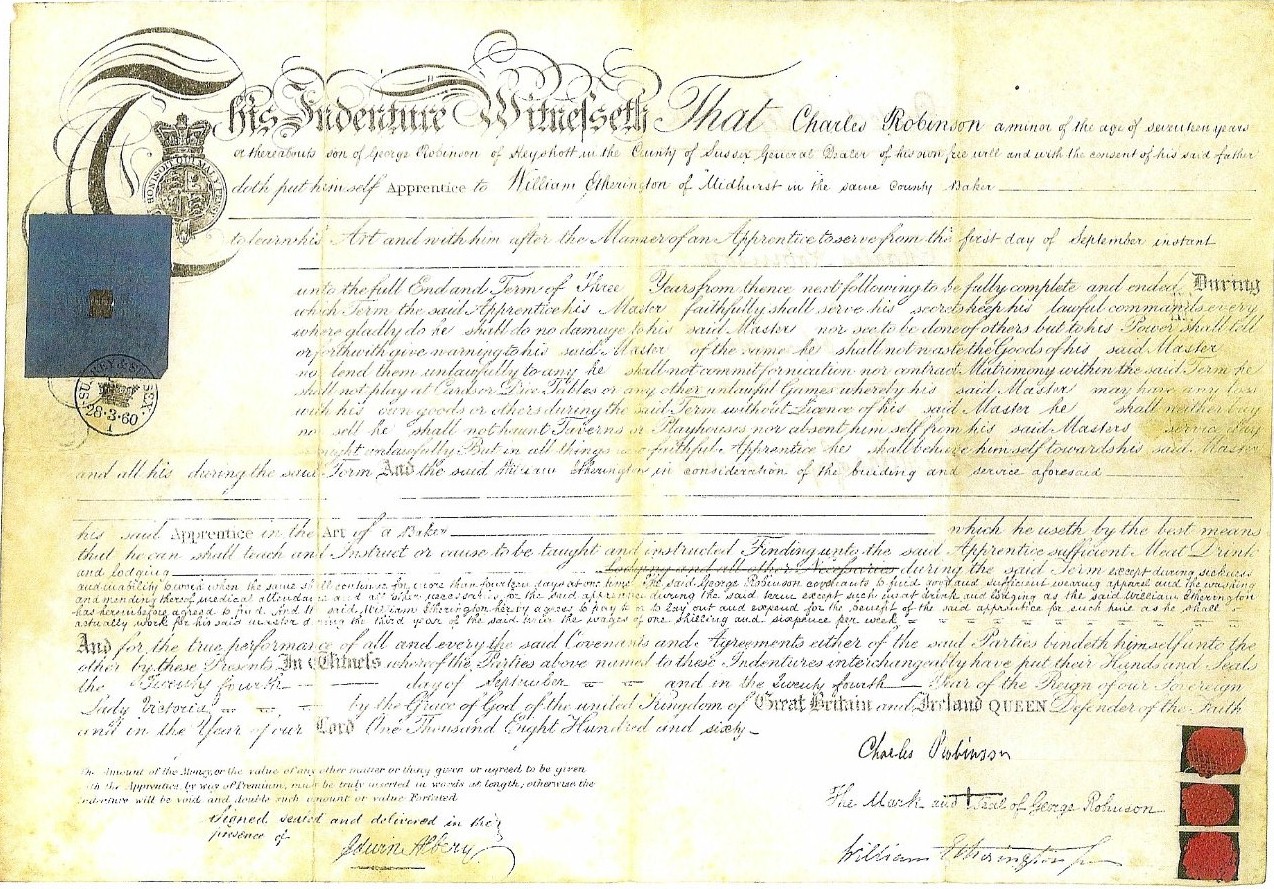 This Indenture Witnesseth That Charles Robinson a minor of the age of seventeen years
or thereabouts son of George Robinson of Heyshott in the County of Sussex General Dealer of his own free will and with the consent of his said father
doth put himself Apprentice to William Etherington of Midhurst in the same County Baker
HONI SOIT QUI MAL Y PENSE
to learn his Art and with him after the Manner of an Apprentice to serve from the first day of September instant
unto the full End and Term of Three Years from thence next following to be fully complete and ended During
which Term the said Apprentice his Master faithfully shall serve his secrets keep his lawful commands every
where gladly do he shall do no damage to his said Master nor see to be done of others but to his Power shall tell
or forthwith give warning to his said Master of the same he shall not waste the Goods of his said Master
no lend them unlawfully to any he shall not commit fornication nor contract Matrimony within the said Term he
shall not play at Cards or Dice Tables or any other unlawful Games whereby his said Master may have any loss
with his own goods or others during the said Term without Licence of his said Master he shall neither buy
no sell he shall not haunt Taverns or Playhouses nor absent himself from his said Masters service day
night unlawfully But in all things as a faithful Apprentice he shall behave himself towards his said Master
and all his during the said Term And the said William Etherington in consideration of the building and service aforesaid
28·3·60
1
his said Apprentice in the Art of a Baker which he useth by the best means
that he can shall teach and Instruct or cause to be taught and instructed Finding unto the said Apprentice sufficient Meat Drink
and lodging lodging and all other Necessaries during the said Term except during sickness
and inability to work when the same shall continue for more than fourteen days at one time The said George Robinson covenants to find good and sufficient wearing apparel and the washing
and mending thereof medical attendance and all other necessaries for the said apprentice during the said term except such meat drink and lodging as the said William Etherington
has hereinbefore agreed to find. And the said William Etherington hereby agrees to pay to or to lay out and expend for the benefit of the said apprentice for such time as he shall
actually work for his said master during the third year of the said term the wages of one shilling and sixpence per week
And for the true performance of all and every the said Covenants and Agreements either of the said Parties bindeth himself unto the
other by these Presents In Witness whereof the Parties above named to these Indentures interchangeably have put their Hands and Seals
the Twenty fourth day of September and in the Twenty fourth Year of the Reign of our Sovereign
Lady Victoria by the Grace of God of the united Kingdom of Great Britain and Ireland QUEEN Defender of the Faith
and in the Year of our Lord One Thousand Eight Hundred and sixty
Charles Robinson
The Amount of the Money, or the value of any other matter or thing given or agreed to be given
with the Apprentice, by way of Premium, must be truly inserted in words at length; otherwise the
Indenture will be void and double such amount or value Forfeited
The Mark and Seal of George Robinson
Signed sealed and delivered in the
presence of
Edwin Albery
William Etherington